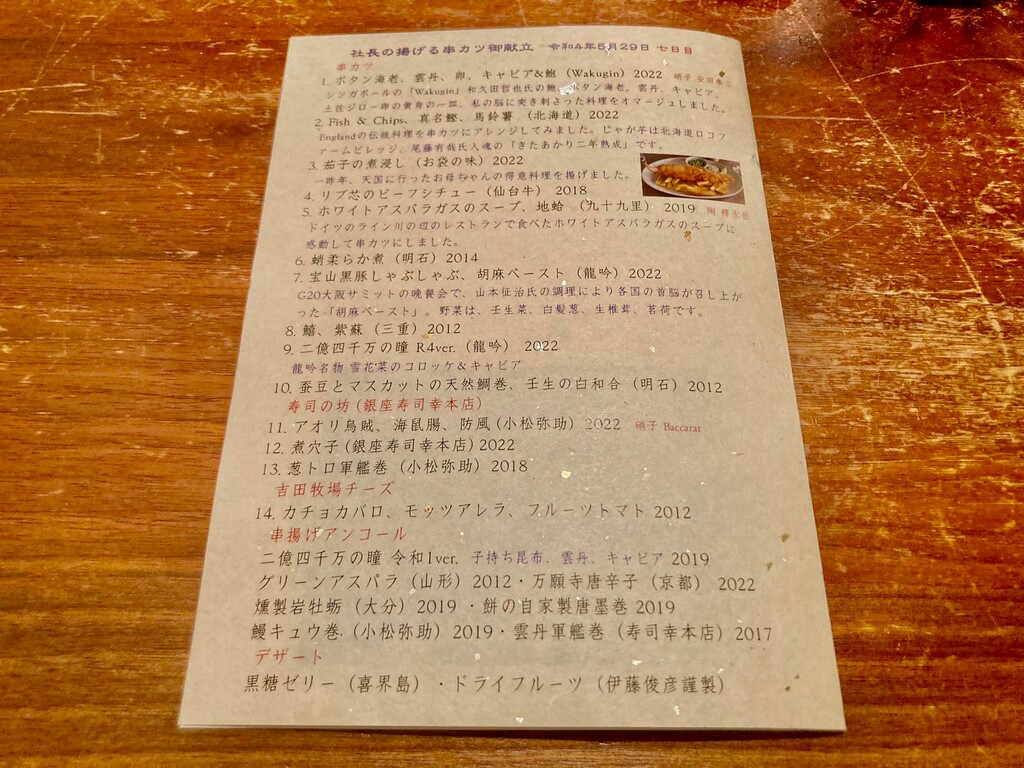 社長の揚げる串カツ御献立 令和4年5月29日 七日目
串カツ
1. ボタン海老、雲丹、卵、キャビア&鮑（Wakugin）2022 硝子 安田泰三
シンガポールの「Wakugin」和久田哲也氏の鮑、ボタン海老、雲丹、キャビア、
土佐ジロー卵の黄身の一皿、私の脳に突き刺さった料理をオマージュしました。
2. Fish & Chips、真名鰹、馬鈴薯 （北海道）2022
Englandの伝統料理を串カツにアレンジしてみました。じゃが芋は北海道ロコファ
ームビレッジ、尾藤有哉氏入魂の「きたあかり二年熟成」です。
3. 茄子の煮浸し（お袋の味）2022
一昨年、天国に行ったお母ちゃんの得意料理を揚げました。
4. リブ芯のビーフシチュー（仙台牛） 2018
5. ホワイトアスパラガスのスープ、地蛤 （九十九里） 2019 陶
ドイツのライン川の辺のレストランで食べたホワイトアスパラガスのスープに
感動して串カツにしました。
6. 蛸柔らか煮（明石）2014
7. 宝山黒豚しゃぶしゃぶ、胡麻ペースト（龍吟）2022
G20大阪サミットの晩餐会で、山本征治氏の調理により各国の首脳が召し上が
った「胡麻ペースト」。野菜は、壬生菜、白髪葱、生椎茸、茗荷です。
8. 鱚、紫蘇（三重）2012
9. 二億四千万の瞳 R4ver.（龍吟） 2022
龍吟名物 雪花菜のコロッケ＆キャビア
10. 蚕豆とマスカットの天然鯛巻、壬生の白和合（明石）2012
寿司の坊（銀座寿司幸本店）
11. アオリ烏賊、海鼠腸、防風（小松弥助）2022 硝子 Baccarat
12. 煮穴子（銀座寿司幸本店）2022
13. 葱トロ軍艦巻（小松弥助）2018
吉田牧場チーズ
14. カチョカバロ、モッツアレラ、フルーツトマト 2012
串揚げアンコール
二億四千万の瞳 令和1ver. 子持ち昆布、雲丹、キャビア 2019
グリーンアスパラ（山形）2012・万願寺唐辛子（京都） 2022
燻製岩牡蛎（大分）2019 ・餅の自家製唐墨巻 2019
鰻キュウ巻.（小松弥助）2019・雲丹軍艦巻（寿司幸本店）2017
デザート
黒糖ゼリー（喜界島）・ドライフルーツ（伊藤俊彦謹製）